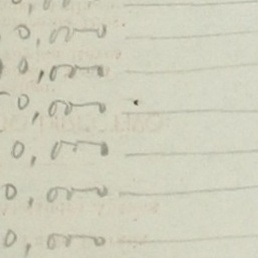 0,000
0,000
0,000
0,000
0,000
0,000
0,000